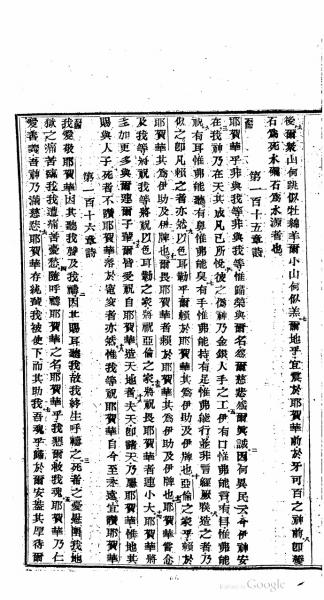 後爾衆山何跳似牡綿羊爾小山何似羔爾地乎宜震於耶賀華前於牙可百之神前卽變
石爲死水礪石爲水源者也
第一百十五章詩
耶賀華乎非與我等非與我等惟歸榮與爾名爲爾慈悲爲爾眞誠因何異民云今伊神安
在我神乃在天其成凡己所悅後之偶神乃金銀人手之工伊有口惟弗能言有目惟弗能
視有耳惟弗能聽有鼻惟弗能臭有手惟弗能持有足惟弗能行並非厥喉造之者乃
似之卽凡賴之者亦然以色耳勒乎爾賴於耶賀華其爲伊助及伊牌也亞倫之家乎賴於
耶賀華其爲伊助及伊牌也爾畏耶賀華者賴於耶賀華其爲伊助及伊牌也耶賀華嘗念
及我等將祝我等將祝以色耳勒之家將祝亞倫之家將祝畏耶賀華者連小大耶賀華將
多加更多與爾連爾子輩爾皆受祝自耶賀華造天地者夫天卽諸天乃屬耶賀華惟地其
賜與人子死者不讚耶賀華落於寂寞者亦然惟我等祝耶賀華自今至永遠宜讚耶賀華
第一百十六章詩
我愛敬耶賀華因其聽我聲及我禱因其賜耳聽我故我終生呼禱之死者之憂患圍我地
獄之痛苦獲我我遭痛苦憂愁隨呼禱耶賀華之名耶賀華乎我懇爾救我魂耶賀華乃仁
愛善義吾神乃滿慈悲耶賀華存純善我被使下而其助我吾魂乎歸於爾安蓋其厚待爾
Google